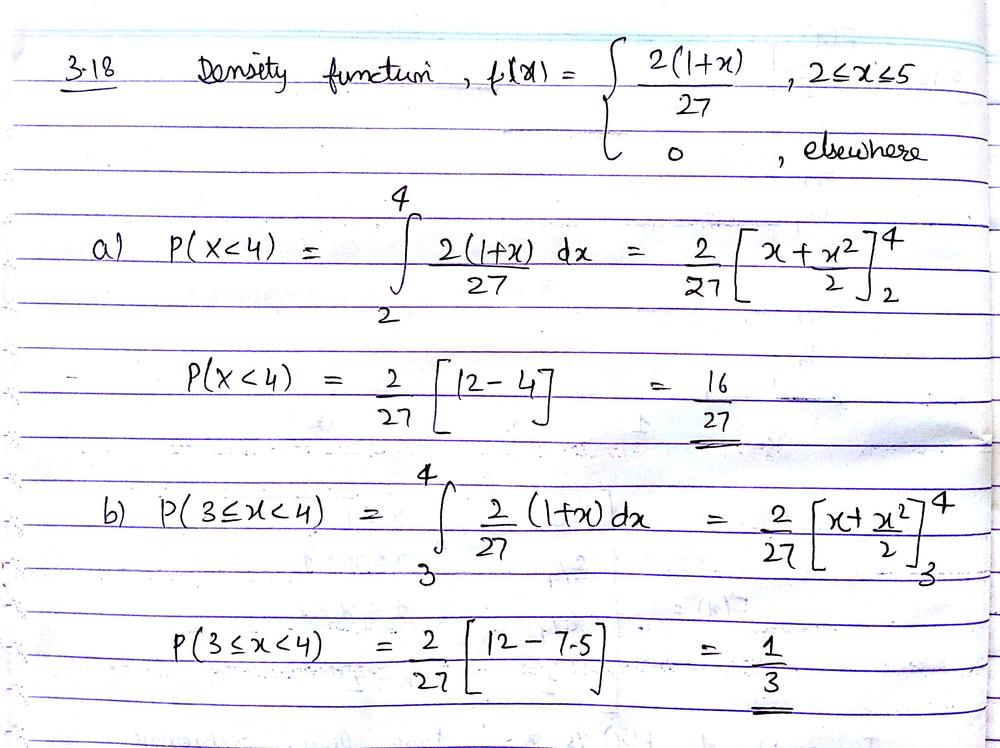 3.18 Density function, f(x) = { 2(1+x)/27 , 2≤x≤5
0 , elsewhere
a) P(X<4) = ∫₂⁴ 2(1+x)/27 dx = 2/27 [x + x²/2]₂⁴
P(X<4) = 2/27 [12 - 4] = 16/27
b) P(3≤x<4) = ∫₃⁴ 2/27 (1+x) dx = 2/27 [x + x²/2]₃⁴
P(3≤x<4) = 2/27 [12 - 7.5] = 1/3